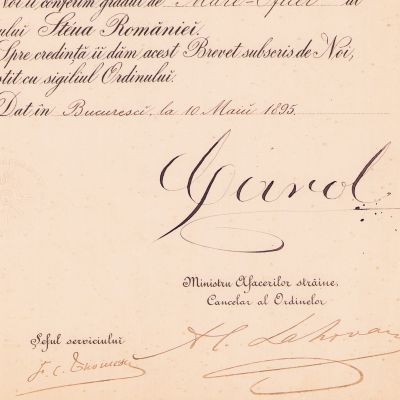 Noi îi conferim gradul de Mare-Ofițer al
ului Steua României.
Spre credință îi dăm acest Brevet subscris de Noi,
stit cu sigiliul Ordinului.
Dat în București, la 10 Maiu 1895.
Carol
Ministru Afacerilor străine,
Cancelar al Ordinelor
Al. Lahovari
Șeful serviciului